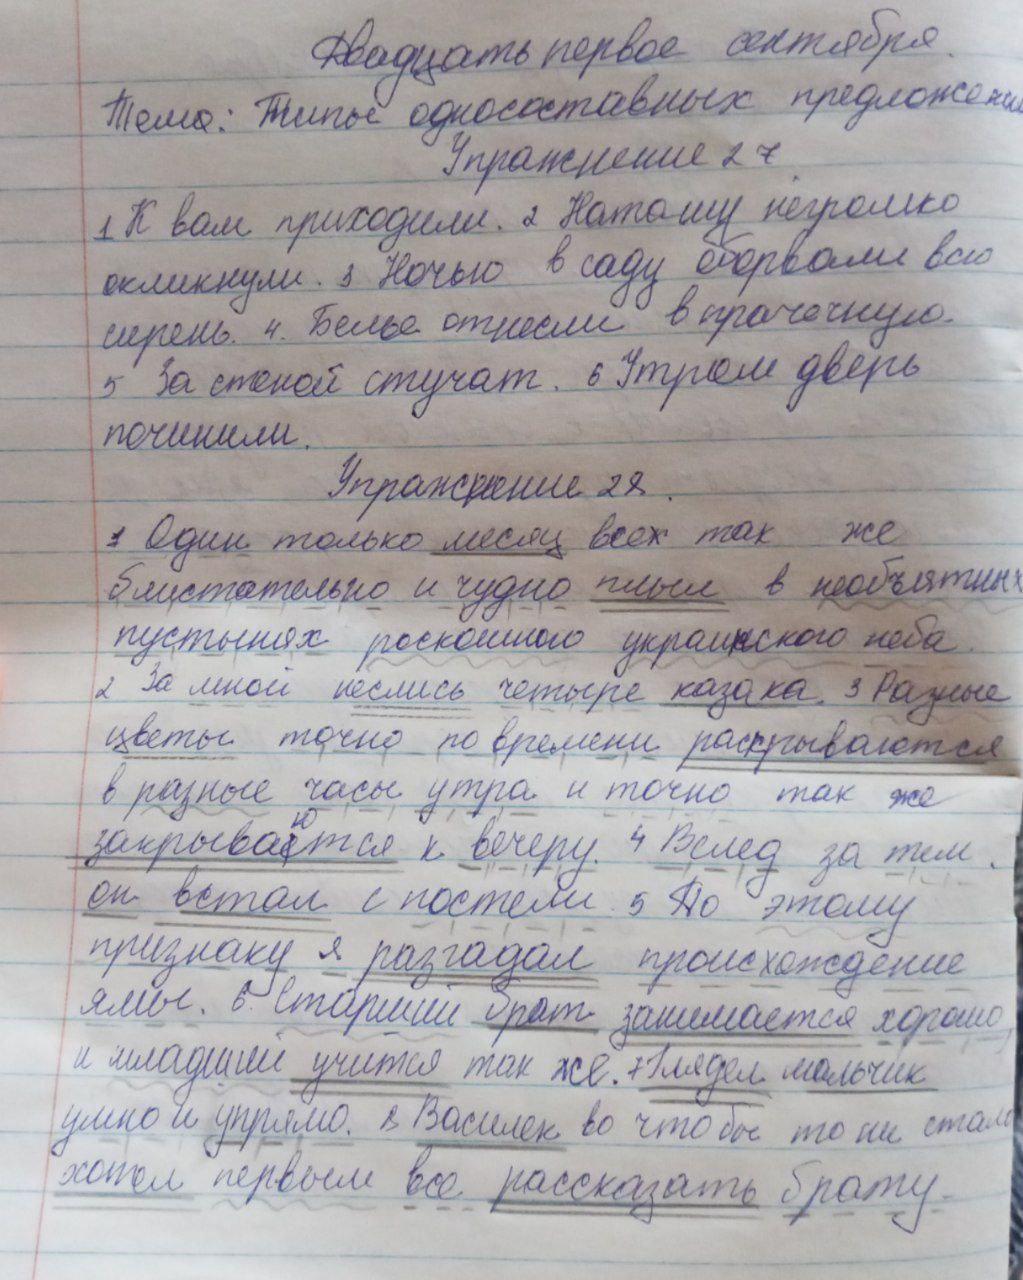 Двадцать первое сентября.
Тема: Типы односоставных предложений
Упражнение 27
1 К вам приходили. 2 Наташу негромко
окликнули. 3 Ночью в саду оборвали всю
сирень. 4. Белье отнесли в прачечную.
5 За стеной стучат. 6 Утром дверь
починили.
Упражнение 28.
1 Один только месяц всех так же
блистательно и чудно плыл в необъятных
пустынях роскошного украинского неба.
2 За мной неслись четыре казака. 3 Разные
цветы точно по времени раскрываются
в разные часы утра и точно так же
закрываются к вечеру. 4 Вслед за тем.
он встал с постели. 5 По этому
признаку я разгадал происхождение
ямы. 6. Старший брат занимается хорошо,
и младший учится так же. 7 Глядел мальчик
умно и упрямо. 8 Василек во что бы то ни стало
хотел первым все рассказать брату.